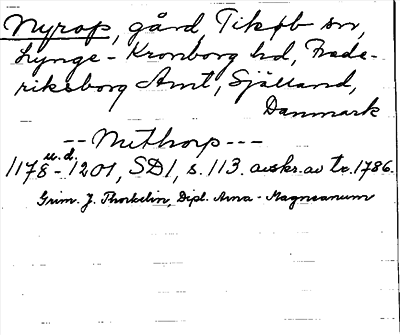 Nyrop, gård, Tikøb sn,
Lynge-Kronborg hd, Frede-
riksborg Amt, Själland,
Danmark
-- Nuthorp ---
u.d.
1178-1201, SD1, s. 113. avskr. av tr. 1786.
Grim. J. Thorkelin, Dipl. Arna-Magnæanum